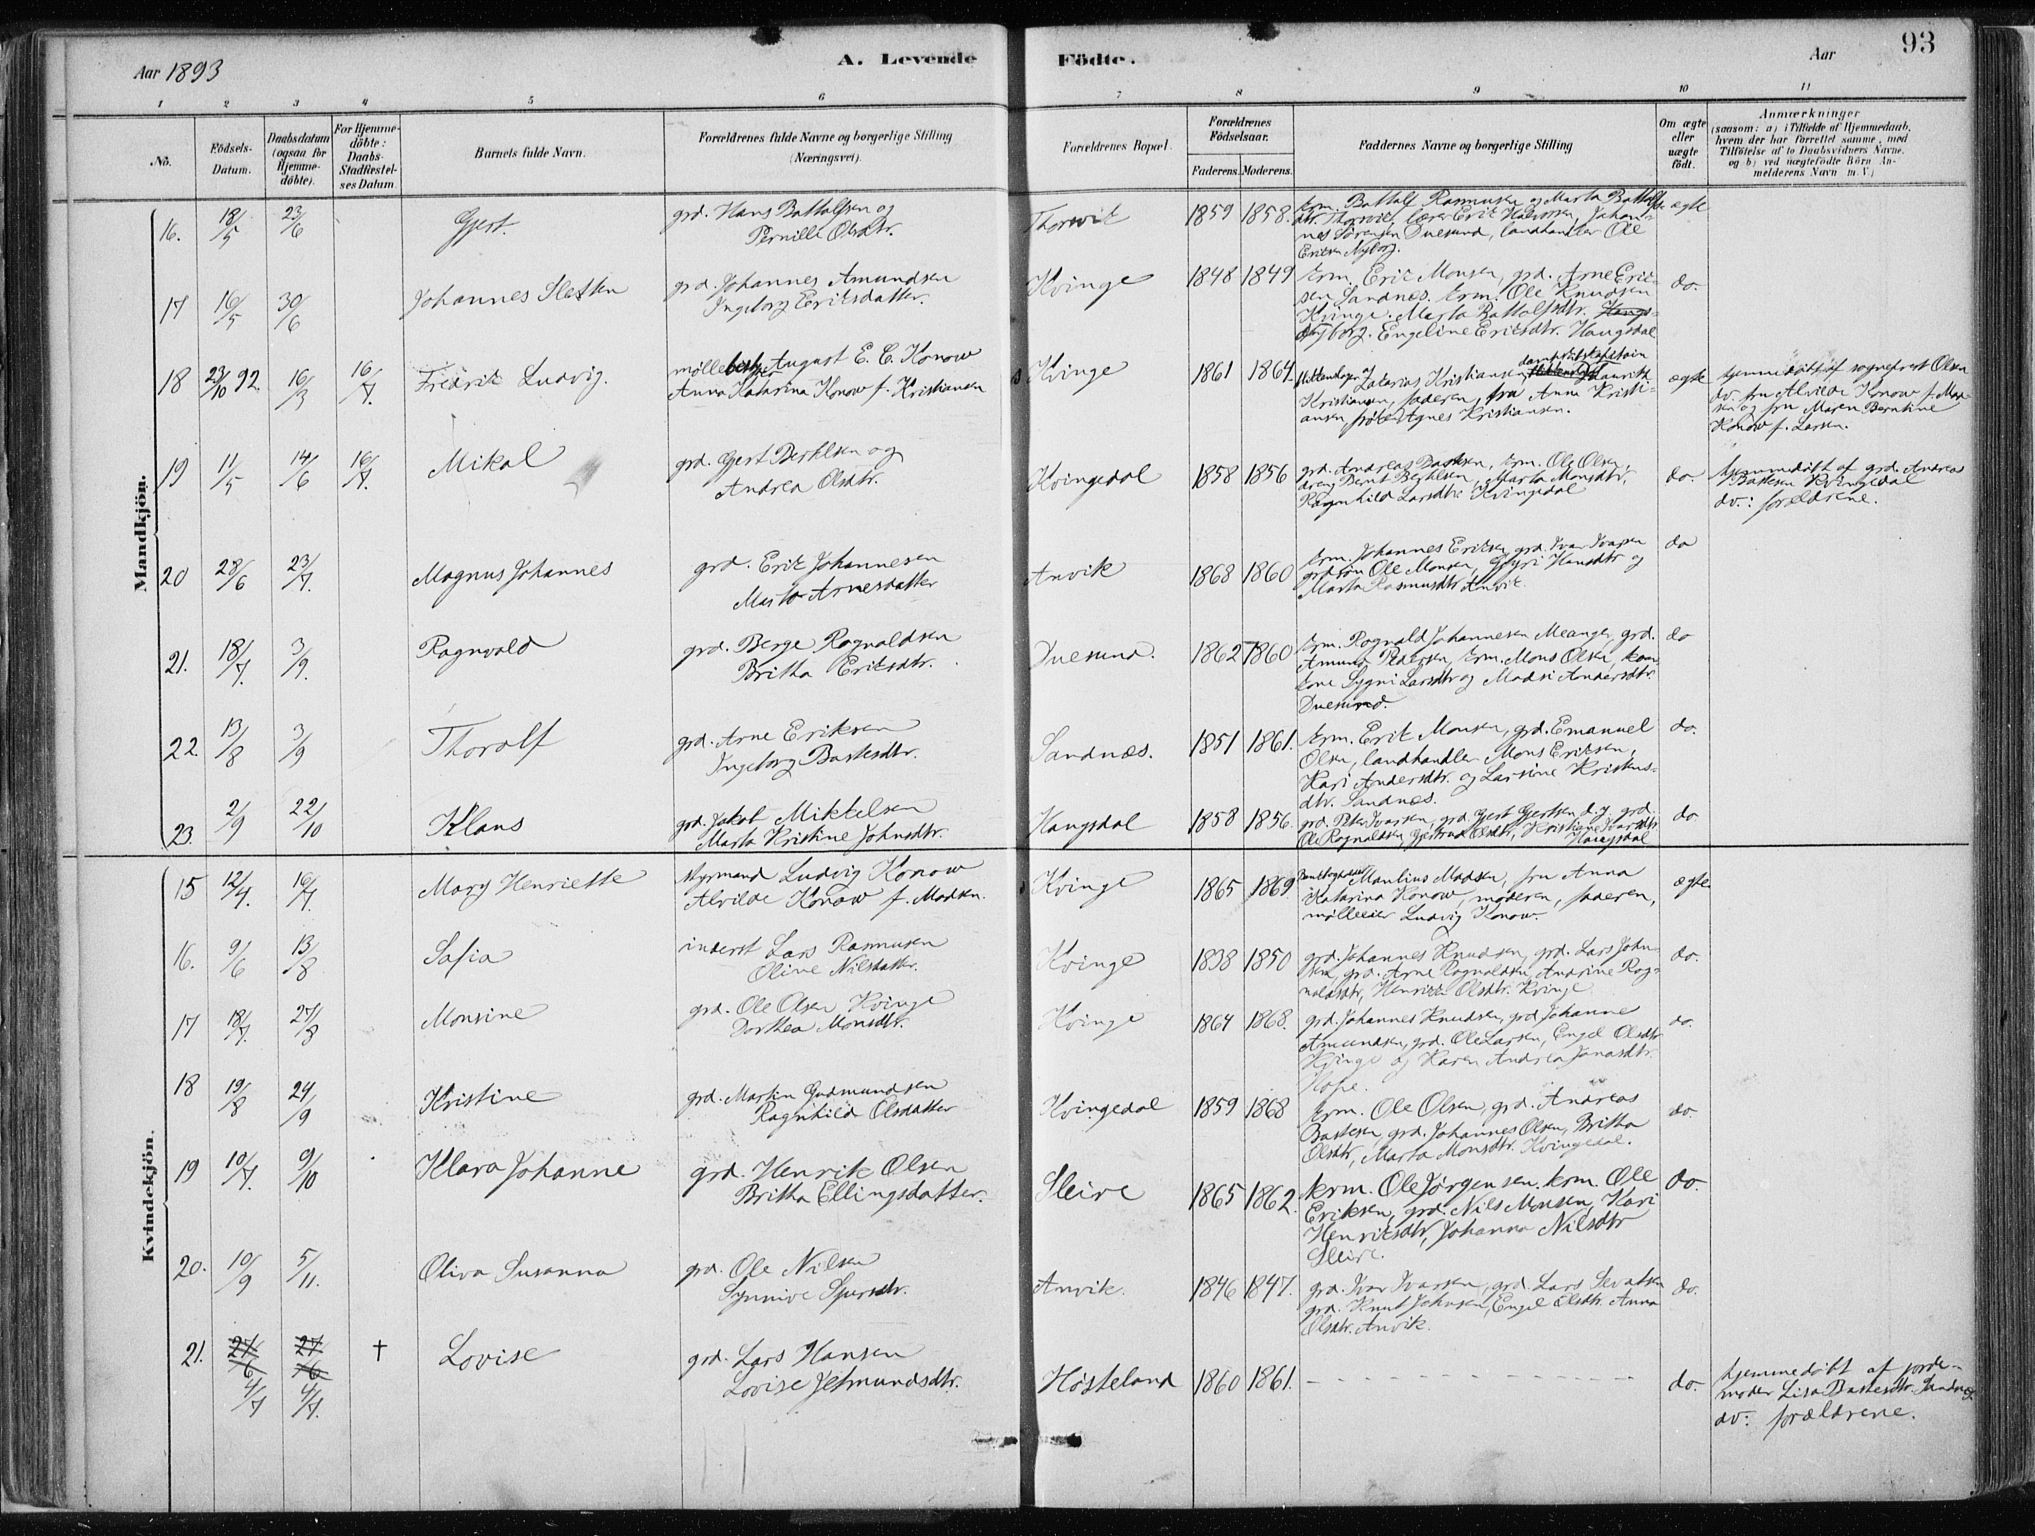 Aar 1893
A. Levende Födte.
Aar
93
1 2 3 4 5 6 7 8 9 10 11
No.
Födsels-Datum.
Daabsdatum (ogsaa for Hjemme-döbte).
For Hjemme-döbte: Daabs-Stadfæstel-ses Datum
Barnets fulde Navn.
Forældrenes fulde Navne og borgerlige Stilling (Næringsvei).
Forældrenes Bopæl.
Forældrenes Födselsaar.
Faderens. Moderens.
Faddernes Navne og borgerlige Stilling
Om ægte eller uægte födt.
Anmærkninger
(saasom: a) i Tilfælde af Hjemmedaab,
hvem der har forrettet samme, med
Tilföielse af to Daabsvidners Navne,
og b) ved uægtefödte Börn An-
melderens Navn m. V.)
Mandkjön.
16. 18/5 23/6 Gjert. grd. Hans Battalfsen og
Pernille Olsdtr.
Thorsvik 1859 1858. krm. Battalf Rasmussen og Marta Battalfs-
dtr. Thorsvik, lærer Erik Halvorsen, Johan-
nes Sörensen Duesund, landhandler Ole
Eriksen Nyborg.
ægte
17 16/5 30/6 Johannes Sletten grd. Johannes Amundsen
Ingeborg Eriksdatter.
Kvinge 1848 1849 krm. Erik Monsen, grd. Arne Erik-
sen Sandnæs. krm. Ole Knudsen
Kvinge. Marta Battalfsdtr.
Nyborg. Engeline Eriksdtr. Haugsdal
do.
18 23/10 92. 16/3 16/7. Fredrik Ludvig. mölle August E. C. Konow
Anna Katarina Konow f. Kristiansen
Kvinge 1861 1864 Zakarias Kristiansen, Lauritz
Kristiansen, faderen, fru Anna Kristi-
ansen, fröken Agnes Kristiansen.
ægte hjemmedöbt af sogneprest Olsen
dv. fru Alvilde Konow f. Mad-
sen og fru Maren Berntine
Konow f. Larsen.
19 11/5 14/6 16/7. Mikal grd. Gjert Berthelsen og
Andrea Olsdtr.
Kvingedal 1858 1856 grd. Andreas Bastesen, krm. Ole Olsen,
dreng Bernt Berthelsen, Marta Monsdtr,
Ragnhild Larsdtr. Kvingedal
do. hjemmedöbt af grd. Andreas
Bastesen Kvingedal
dv.: forældrene.
20 28/6 23/7. Magnus Johannes grd. Erik Johannesen
Marta Arnesdatter
Anvik 1868 1860 krm. Johannes Eriksen, grd. Ivar Ivarsen
grdsön Ole Monsen, Gyri Hansdtr og
Marta Rasmusdtr. Anvik
do
21. 18/7. 3/9. Ragnvald grd. Berge Ragnaldsen
Britha Eriksdtr.
Duesund. 1862 1860 krm. Ragnald Johannesen Meanger, grd.
Amund Pedersen, krm. Mons Olsen, kon-
erne Sygni Larsdtr og Madsi Andersdtr.
Duesund.
do
22 13/8 3/9 Thoralf grd. Arne Eriksen
Ingeborg Bastesdtr.
Sandnæs. 1851 1861. krm. Erik Monsen, grd. Emanuel
Olsen, landhandler Mons Eriksen,
Kari Andersdtr. og Larsine Kristens-
dtr. Sandnæs.
do.
23. 2/9 22/10 Klaus grd. Jakob Mikkelsen
Marta Kristine Johnsdtr.
Haugsdal 1858 1856. grd. Peter Ivarsen, grd Gjert Gjertsen d.y, grd.
Ole Ragnaldsen, Gjertrud Olsdtr, Kristiane Ivarsdtr
Haugsdal
do
Kvindekjön.
15 12/4. 16/7. Mary Henriette styrmand Ludvig Konow
Alvilde Konow f. Madsen.
Kvinge 1865 1869 Manlius Madsen, fru Anna
Katarina Konow, moderen, faderen,
mölleeier Ludvig Konow.
ægte
16. 9/6 13/8 Safia inderst Lars Rasmusen
Oline Nilsdatter.
Kvinge 1838 1850 grd. Johannes Knudsen, grd. Lars John-
sen, grd. Arne Ragnaldsen, Andrine Rag-
naldsdtr, Henrikke Olsdtr. Kvinge
do.
17 18/7. 27/8 Monsine grd. Ole Olsen Kvinge
Dorthea Monsdtr.
Kvinge 1864 1868. grd. Johannes Knudsen, grd Johanne
Amundsen, grd. Ole Larsen, Engel Olsdtr
Kvinge og Karen Andrea Jonasdtr.
Hope.
do.
18 19/8 24/9 Kristine grd. Martin Gudmundsen
Ragnhild Olsdatter
Kvingedal 1859 1868 krm. Ole Olsen, grd. Andreas
Bastesen, grd. Johannes Olsen, Britha
Olsdtr, Marta Monsdtr. Kvingedal.
do.
19 10/7. 9/10 Klara Johanne grd. Henrik Olsen
Britha Ellingsdatter.
Sleire 1865 1862. krm. Ole Jørgensen. krm. Ole
Eriksen, grd. Nils Monsen, Kari
Henriksdtr, Johanna Nilsdtr
Sleire.
do.
20. 10/9 5/11. Oliva Susanna grd. Ole Nilsen
Synnive Sjursdtr.
Anvik. 1846 1847. grd. Ivar Ivarsen, grd. Lars Sevatsen
grd. Knut Johnsen, Engel Olsdtr. Anna
Olsdtr. Anvik.
do.
21. 27/6 4/7 27/6 4/7. † Lovise grd. Lars Hansen
Lovise Jetmundsdtr.
Høsteland 1860 1861. - - - - - do. hjemmedöbt af jorde-
moder Lisa Bastesdtr. Sandnæs
dv: forældrene.